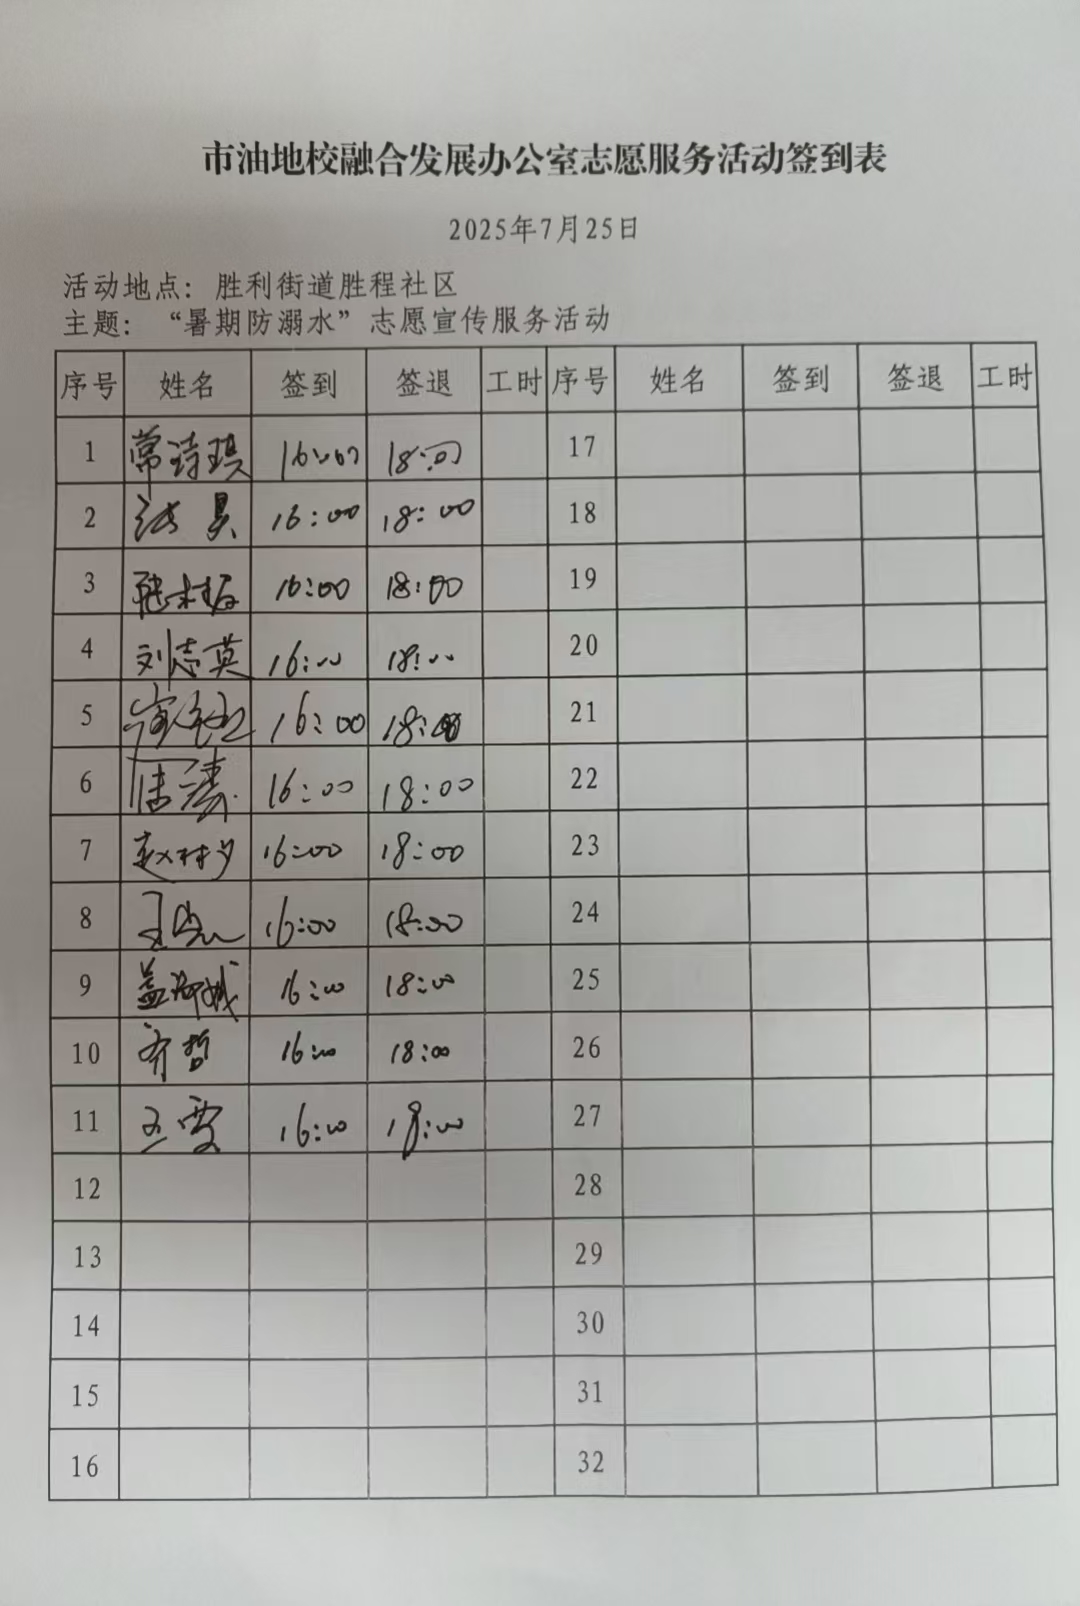 市油地校融合发展办公室志愿服务活动签到表
2025年7月25日
活动地点：胜利街道胜程社区
主题：“暑期防溺水”志愿宣传服务活动
序号 姓名 签到 签退 工时 序号 姓名 签到 签退 工时
1 常诗琪 16:00 18:00 17
2 16:00 18:00 18
3 16:00 18:00 19
4 刘志英 16:00 18:00 20
5 16:00 18:00 21
6 16:00 18:00 22
7 16:00 18:00 23
8 16:00 18:00 24
9 16:00 18:00 25
10 齐哲 16:00 18:00 26
11 王雯 16:00 18:00 27
12 28
13 29
14 30
15 31
16 32